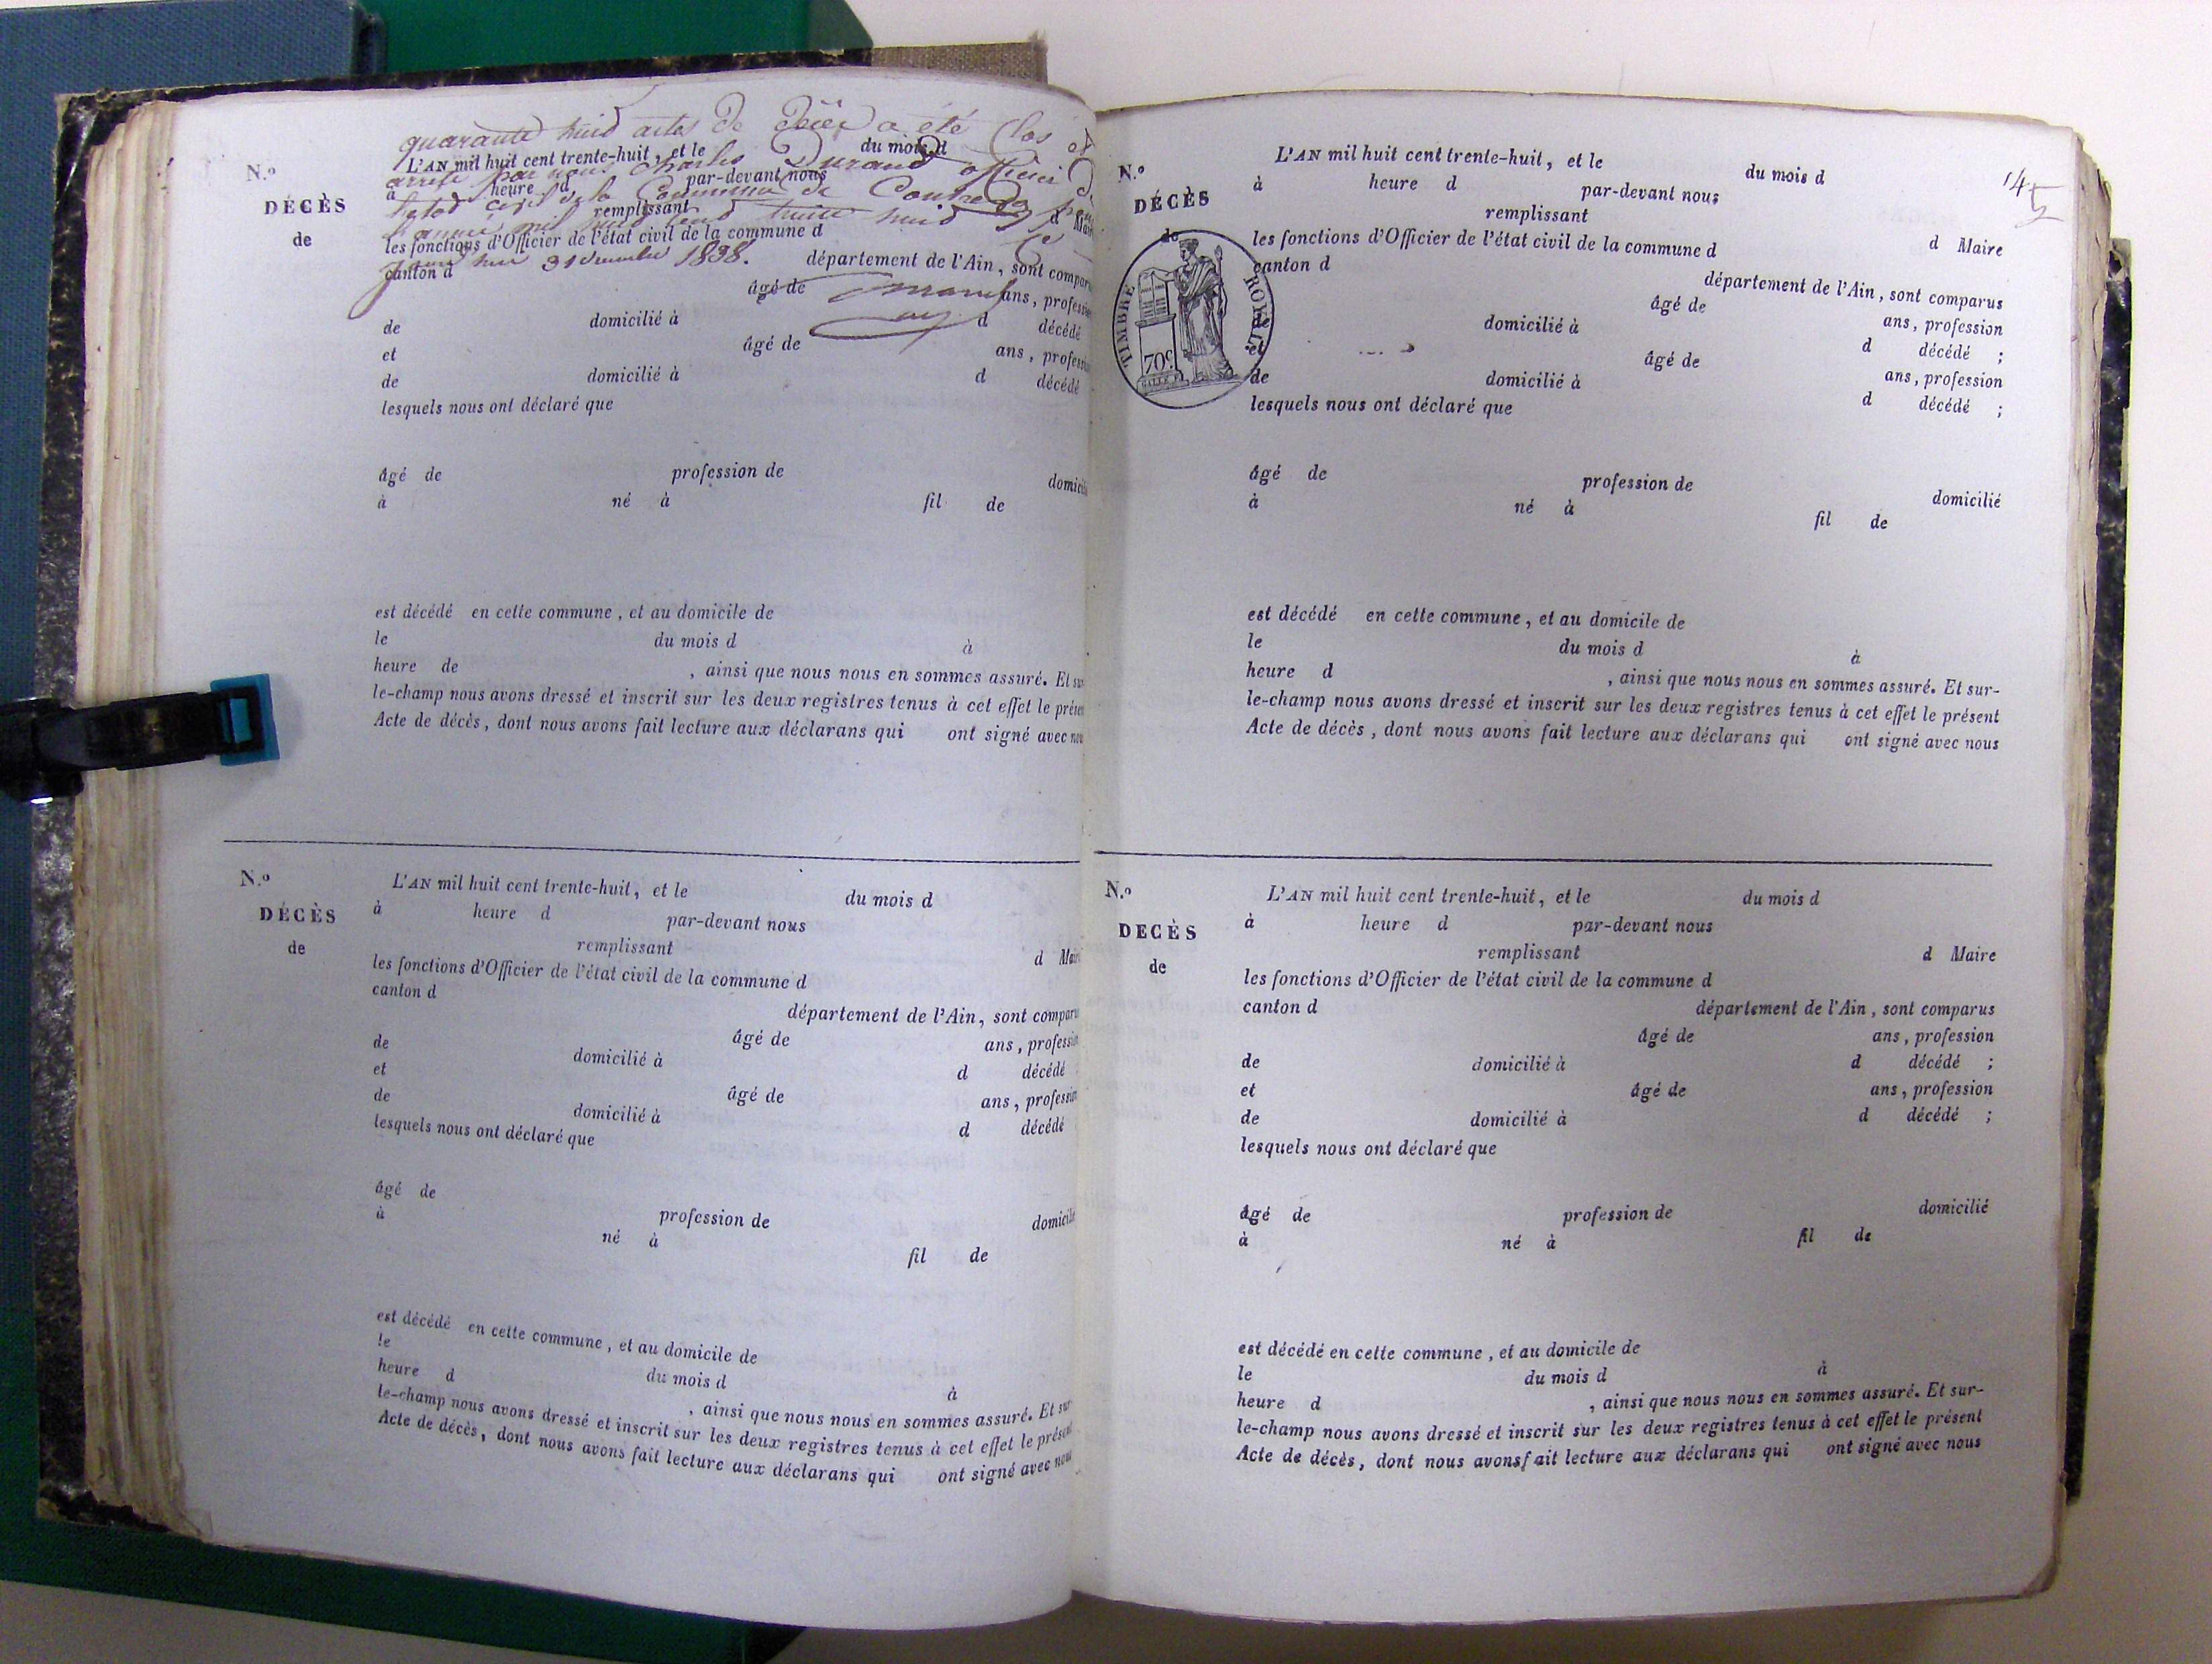 quarante huit actes de décès a été clos et
L'AN mil huit cent trente-huit, et le du mois d
arrêté par nous Charles Durand officier
à heure d par-devant nous
civil de la Commune de
remplissant d Maire
mil huit cent trente huit
les fonctions d'Officier de l'état civil de la commune d
31 décembre 1838.
canton d département de l'Ain, sont comparu
N.º
DÉCÈS
de
âgé de ans, profession
de domicilié à d décédé
et âgé de ans, profession
de domicilié à d décédé
lesquels nous ont déclaré que
âgé de profession de domicilié
à né à fil de
est décédé en cette commune, et au domicile de
le du mois d à
heure de , ainsi que nous nous en sommes assuré. Et sur
le-champ nous avons dressé et inscrit sur les deux registres tenus à cet effet le présent
Acte de décès, dont nous avons fait lecture aux déclarans qui ont signé avec nous
N.º
DÉCÈS
de
L'AN mil huit cent trente-huit, et le du mois d
à heure d par-devant nous
remplissant d Maire
les fonctions d'Officier de l'état civil de la commune d
canton d département de l'Ain, sont comparu
âgé de ans, profession
de domicilié à d décédé
et âgé de ans, profession
de domicilié à d décédé
lesquels nous ont déclaré que
âgé de profession de domicilié
à né à fil de
est décédé en cette commune, et au domicile de
le du mois d à
heure d , ainsi que nous nous en sommes assuré. Et sur
le-champ nous avons dressé et inscrit sur les deux registres tenus à cet effet le présent
Acte de décès, dont nous avons fait lecture aux déclarans qui ont signé avec nous
145
N.º
DÉCÈS
de
TIMBRE ROYAL
70c.
L'AN mil huit cent trente-huit, et le du mois d
à heure d par-devant nous
remplissant d Maire
les fonctions d'Officier de l'état civil de la commune d
canton d département de l'Ain, sont comparus
âgé de ans, profession
de domicilié à d décédé ;
et âgé de ans, profession
de domicilié à d décédé ;
lesquels nous ont déclaré que
âgé de profession de domicilié
à né à fil de
est décédé en cette commune, et au domicile de
le du mois d à
heure d , ainsi que nous nous en sommes assuré. Et sur-
le-champ nous avons dressé et inscrit sur les deux registres tenus à cet effet le présent
Acte de décès, dont nous avons fait lecture aux déclarans qui ont signé avec nous
N.º
DECÈS
de
L'AN mil huit cent trente-huit, et le du mois d
à heure d par-devant nous
remplissant d Maire
les fonctions d'Officier de l'état civil de la commune d
canton d département de l'Ain, sont comparus
âgé de ans, profession
de domicilié à d décédé ;
et âgé de ans, profession
de domicilié à d décédé ;
lesquels nous ont déclaré que
âgé de profession de domicilié
à né à fil de
est décédé en cette commune, et au domicile de
le du mois d à
heure d , ainsi que nous nous en sommes assuré. Et sur-
le-champ nous avons dressé et inscrit sur les deux registres tenus à cet effet le présent
Acte de décès, dont nous avons fait lecture aux déclarans qui ont signé avec nous